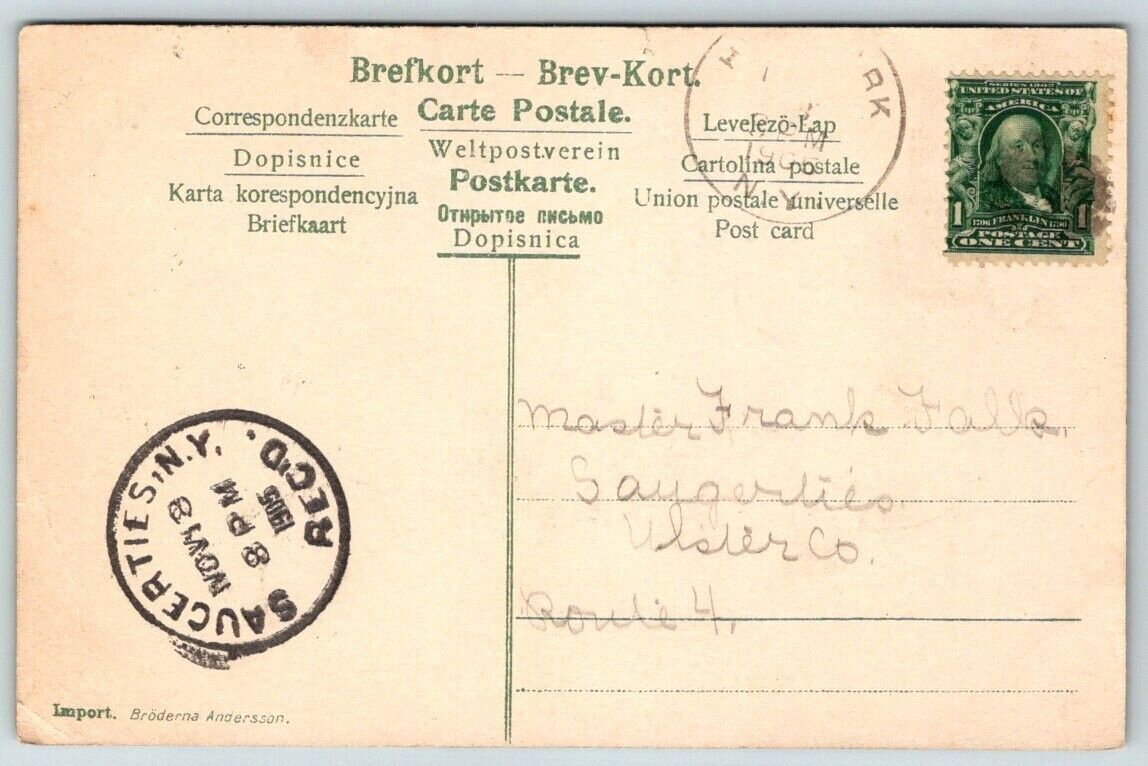 Brefkort — Brev-Kort.
Correspondenzkarte
Carte Postale.
Levelezö-Lap
Dopisnice
Weltpostverein
Cartolina postale
Karta korespondencyjna
Postkarte.
Union postale universelle
Briefkaart
Открытое письмо
Post card
Dopisnica
RK
PM
N.Y.
SERIES 1902
UNITED STATES OF
AMERICA
1 1
1706 FRANKLIN 1790
POSTAGE
ONE CENT
Master Frank Falk.
Saugerties
Ulster Co.
Route 4.
SAUGERTIES, N.Y.
NOV 13
8 PM
1905
REC'D.
Import. Bröderna Andersson.